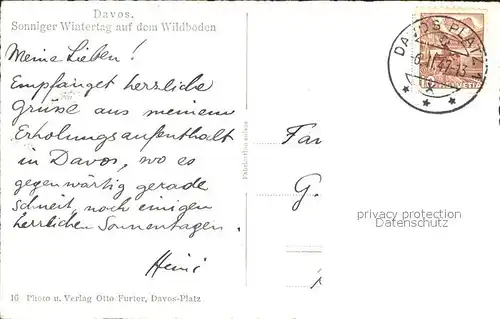 Davos.
Sonniger Wintertag auf dem Wildboden
Meine Lieben!
Empfanget herzliche
Grüsse aus meinem
Erholungsaufenthalt
in Davos, wo es
gegenwärtig gerade
schneit, nach einigen
herrlichen Sonnentagen.
Heini
16 Photo u. Verlag Otto Furter, Davos-Platz
DAVOS-PLATZ
6.II.47.13
HELVETIA
Fabrication suisse
Fa
G.
privacy protection
Datenschutz